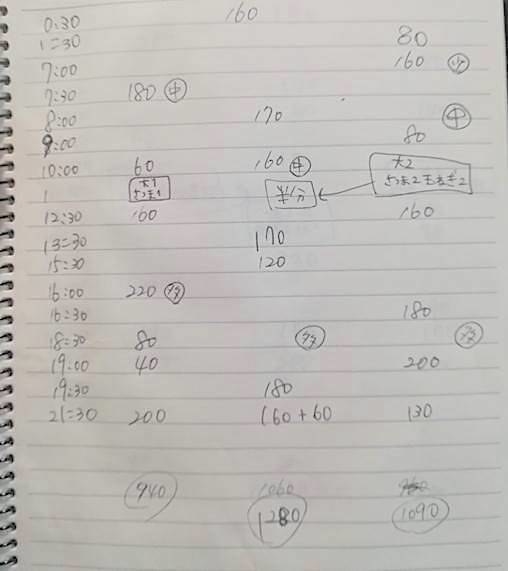 0:30 160
1:30 80
7:00 160 少
7:30 180 中
8:00 170 中
9:00 80
10:00 60 160 中 大2
大1 半分 さつま2 玉ねぎ2
12:30 160 160
13:30 170
15:30 120
16:00 220 多
16:30 180
18:30 80 多 多
19:00 40 200
19:30 180
21:30 200 160+60 130
940 1060
1280 1090